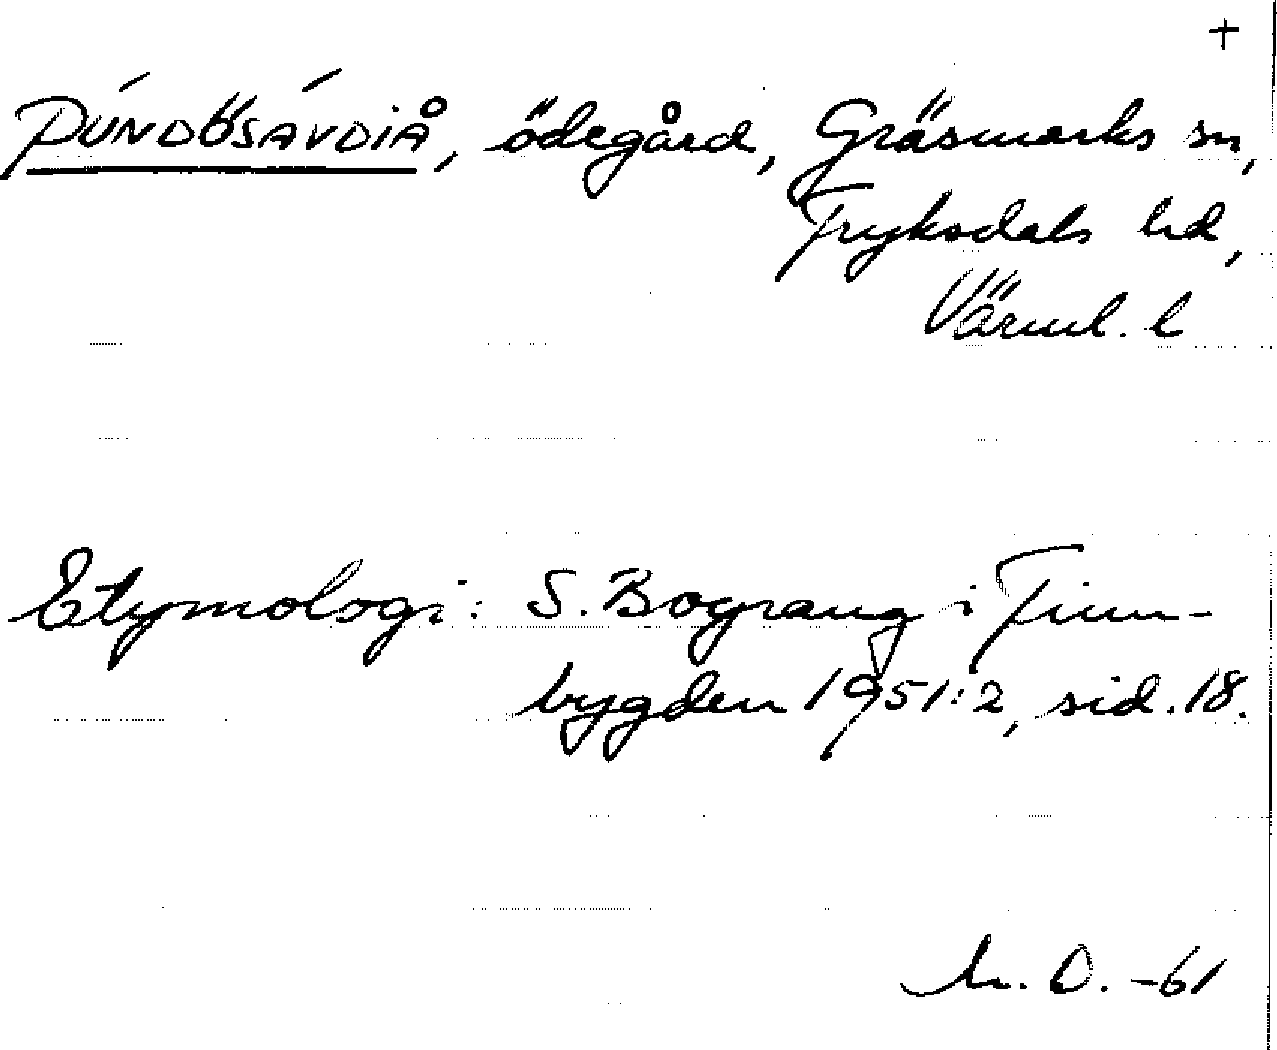 +
PÚNDÖSÁVDIÅ, ödegård, Gräsmarks sn,
Fryksdals hd,
Värml. l
Etymologi: S. Bograng i Finn-
bygden 1951:2, sid. 18.
D. -61